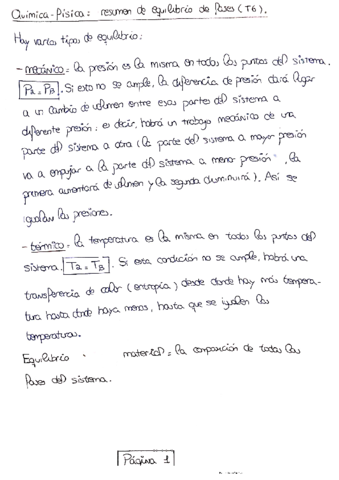 Química-Física: resumen de equilibrio de fases (T6).
Hay varios tipos de equilibrio:
- mecánico = la presión es la misma en todos los puntos del sistema.
Pα = Pβ. Si esto no se cumple, la diferencia de presión dará lugar
a un cambio de volumen entre esas partes del sistema a
diferente presión; es decir, habrá un trabajo mecánico de una
parte del sistema a otra (la parte del sistema a mayor presión
va a empujar a la parte del sistema a menor presión, la
primera aumentará de volumen y la segunda disminuirá). Así se
igualan las presiones.
- térmico = la temperatura es la misma en todos los puntos del
sistema. Tα = Tβ. Si esta condición no se cumple, habrá una
transferencia de calor (entropía) desde donde hay más tempera-
tura hasta donde haya menos, hasta que se igualen las
temperaturas.
Equilibrio material = la composición de todas las
fases del sistema.
Página 1